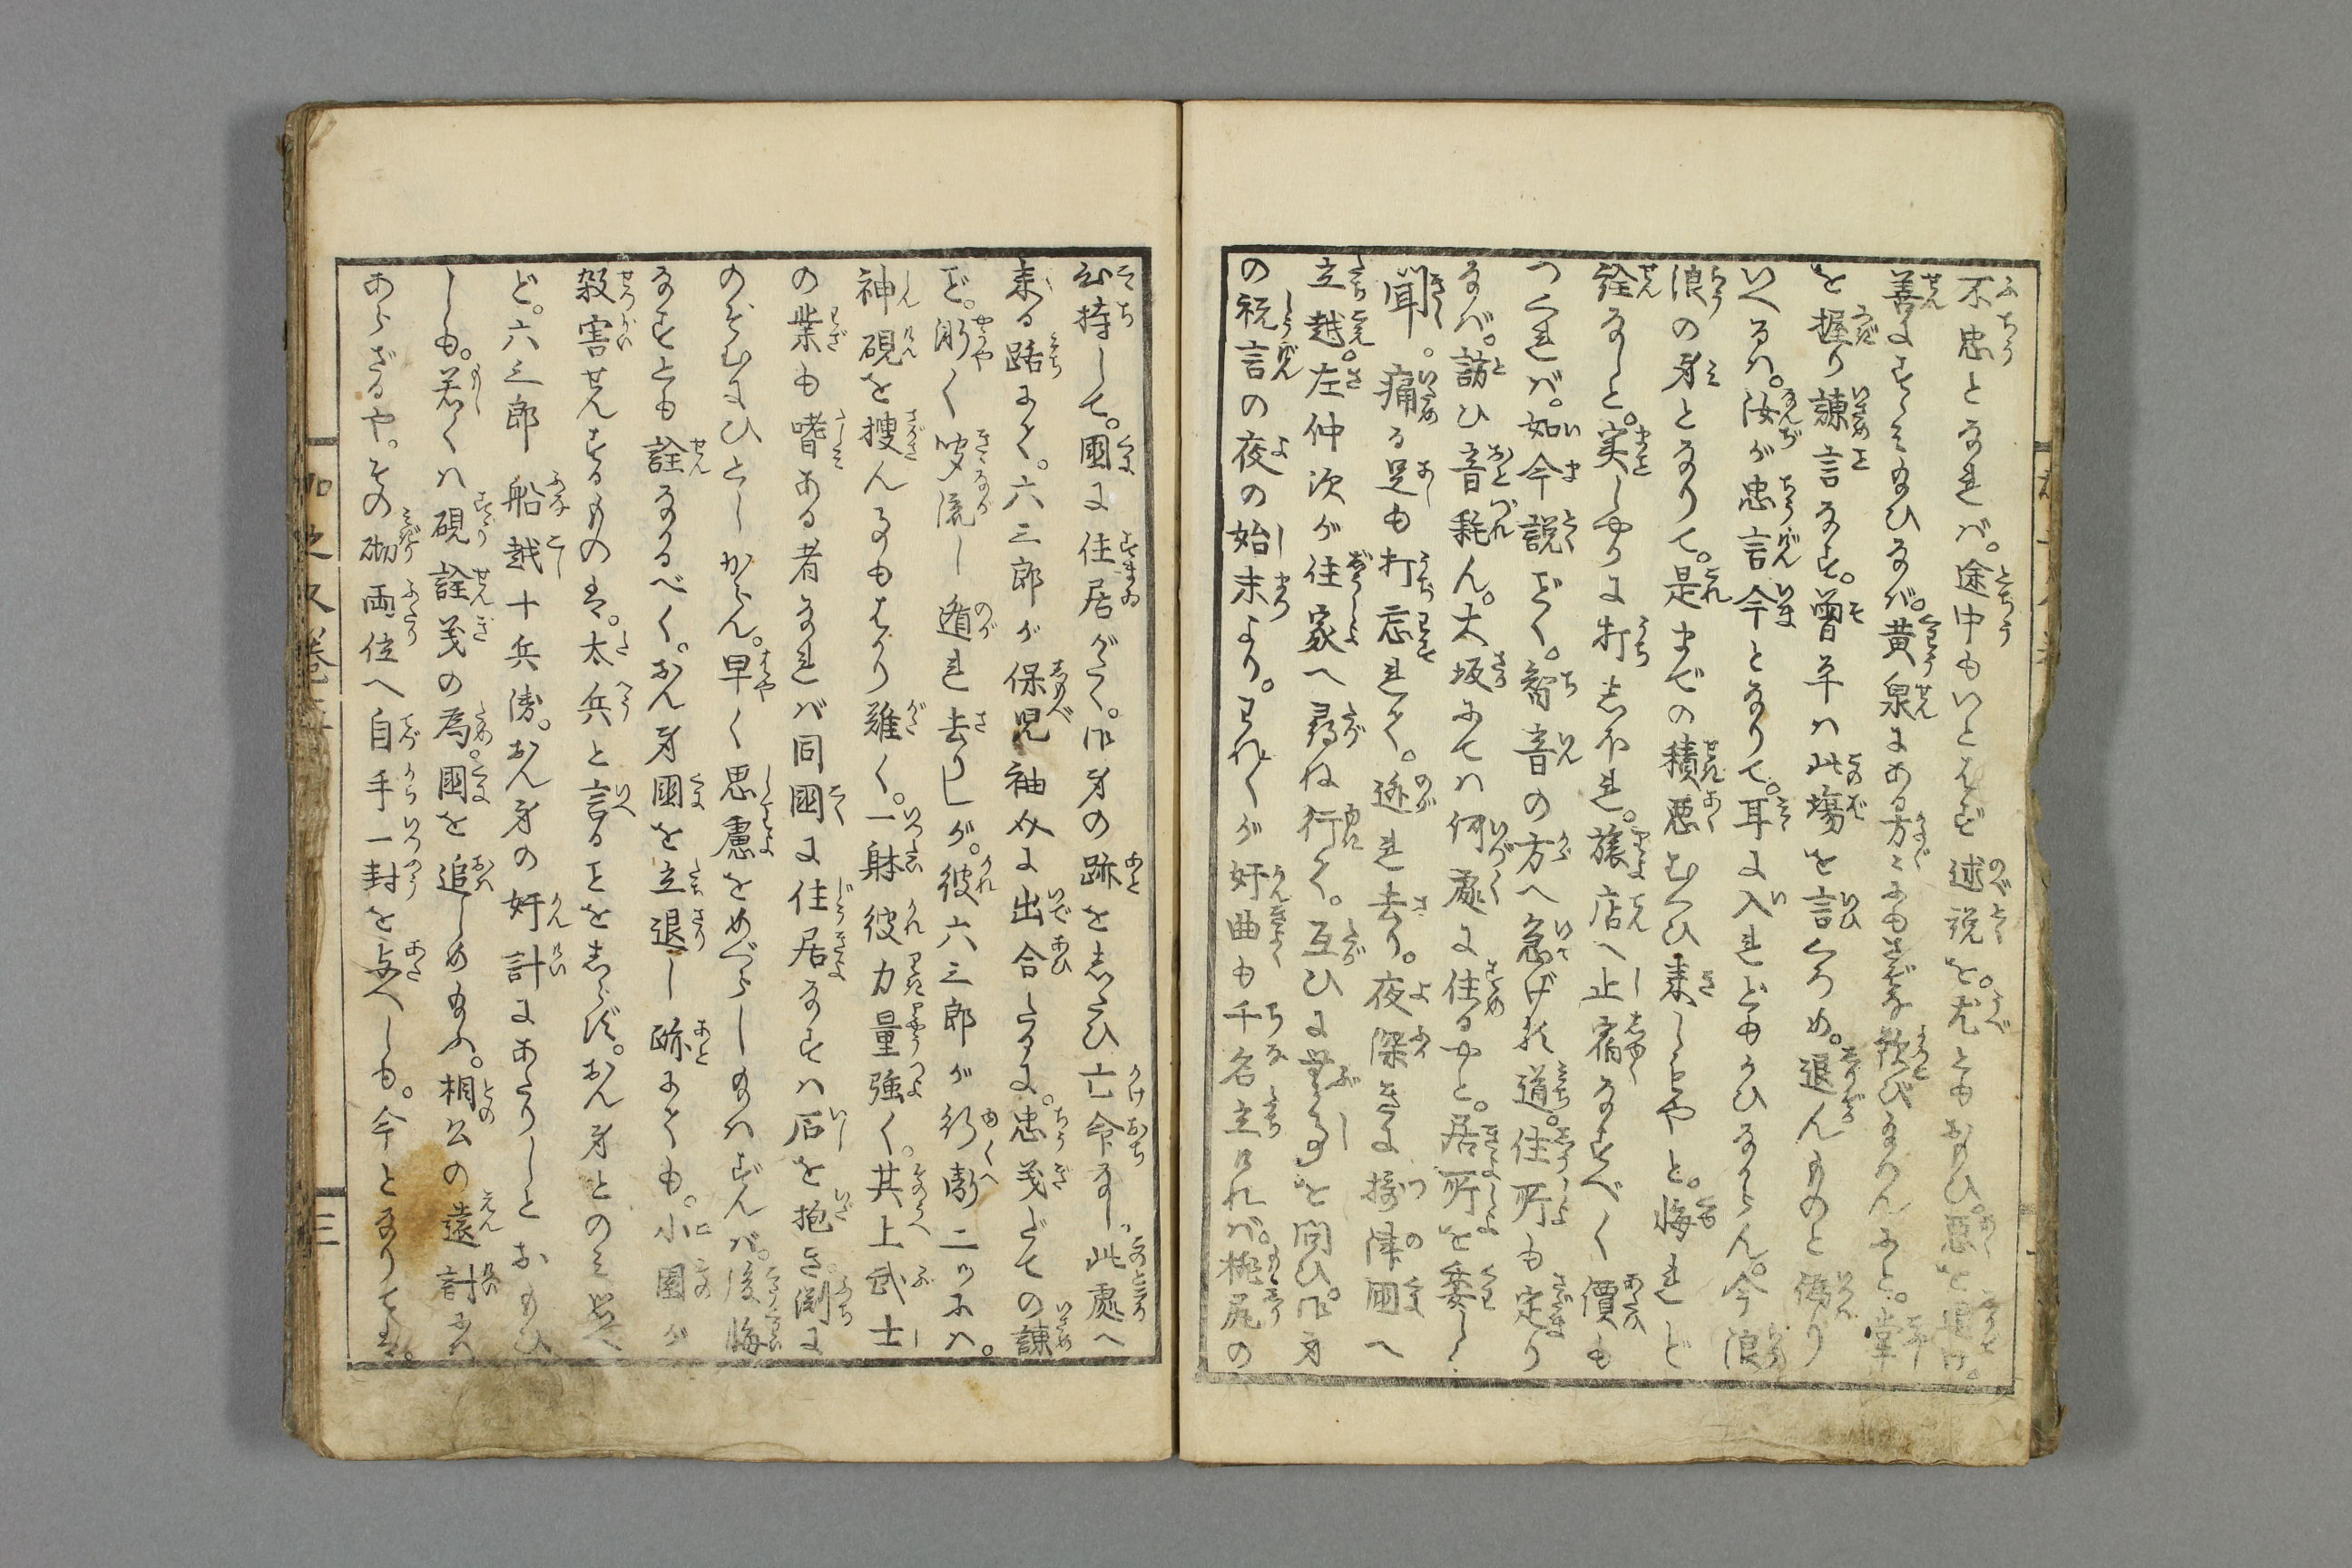 不忠となれバ。途中もいとはず述説を。尤ともおもひ。悪を退け。
善にすゝみ給ひなバ。黄泉にある方〻にもさぞな歓び給はんふと。掌
を握り諫言なす。曽平ハ此場を言くろめ。退んものと偽り
いへるハ。汝が忠言今となりて。耳に入れどもかひなからん。今浪
浪の身となりて。是までの積悪むくひ来しよやと。悔れど
詮なしと。実しやかに打しほれ。旅店へ止宿なすべく價も
つくれバ。如今説どく。智音の方へ急げ共道。住所も定り
なバ。訪ひ音耗ん。大坂にてハ何處に住るやと。居所を委しく
聞。痛る足も打忘れて。遁れ去り。夜深きに摂津國へ
立越。左仲次が住家へ尋ね行て。互ひに無事を問ひ。御身
の祝言の夜の始末より。われ〳〵が奸曲も千名立けれバ。桃尻の
引持して。國に住居がたく。御身の跡をしたひ亡命なし。此處へ
来る路にて。六三郎が保児袖助に出合たるに。忠義だての諫
ど。漸く聞流し遁れ去りしが。彼六三郎が行衛二ツにハ。
神硯を捜んるもはかり難く。一躰彼力量強く。其上武士
の業も嗜ある者なれバ同國に住居なすハ石を抱き渕に
のぞむにひとしからん。早く思慮をめぐらし給ハずんバ。後悔
なすとも詮なかるべく。おん身國を立退し跡にても。小園が
殺害せんするものは。太兵と言るをしらず。おん身とのミ思へ
ど。六三郎船越十兵衛。おん身の奸計にあたりしとおもひ
しも。若くハ硯詮義の為。國を追しめ給ふ。相公の遠計にハ
あらざるや。その砌両位へ自手一封を与へしも。今となりては。
三